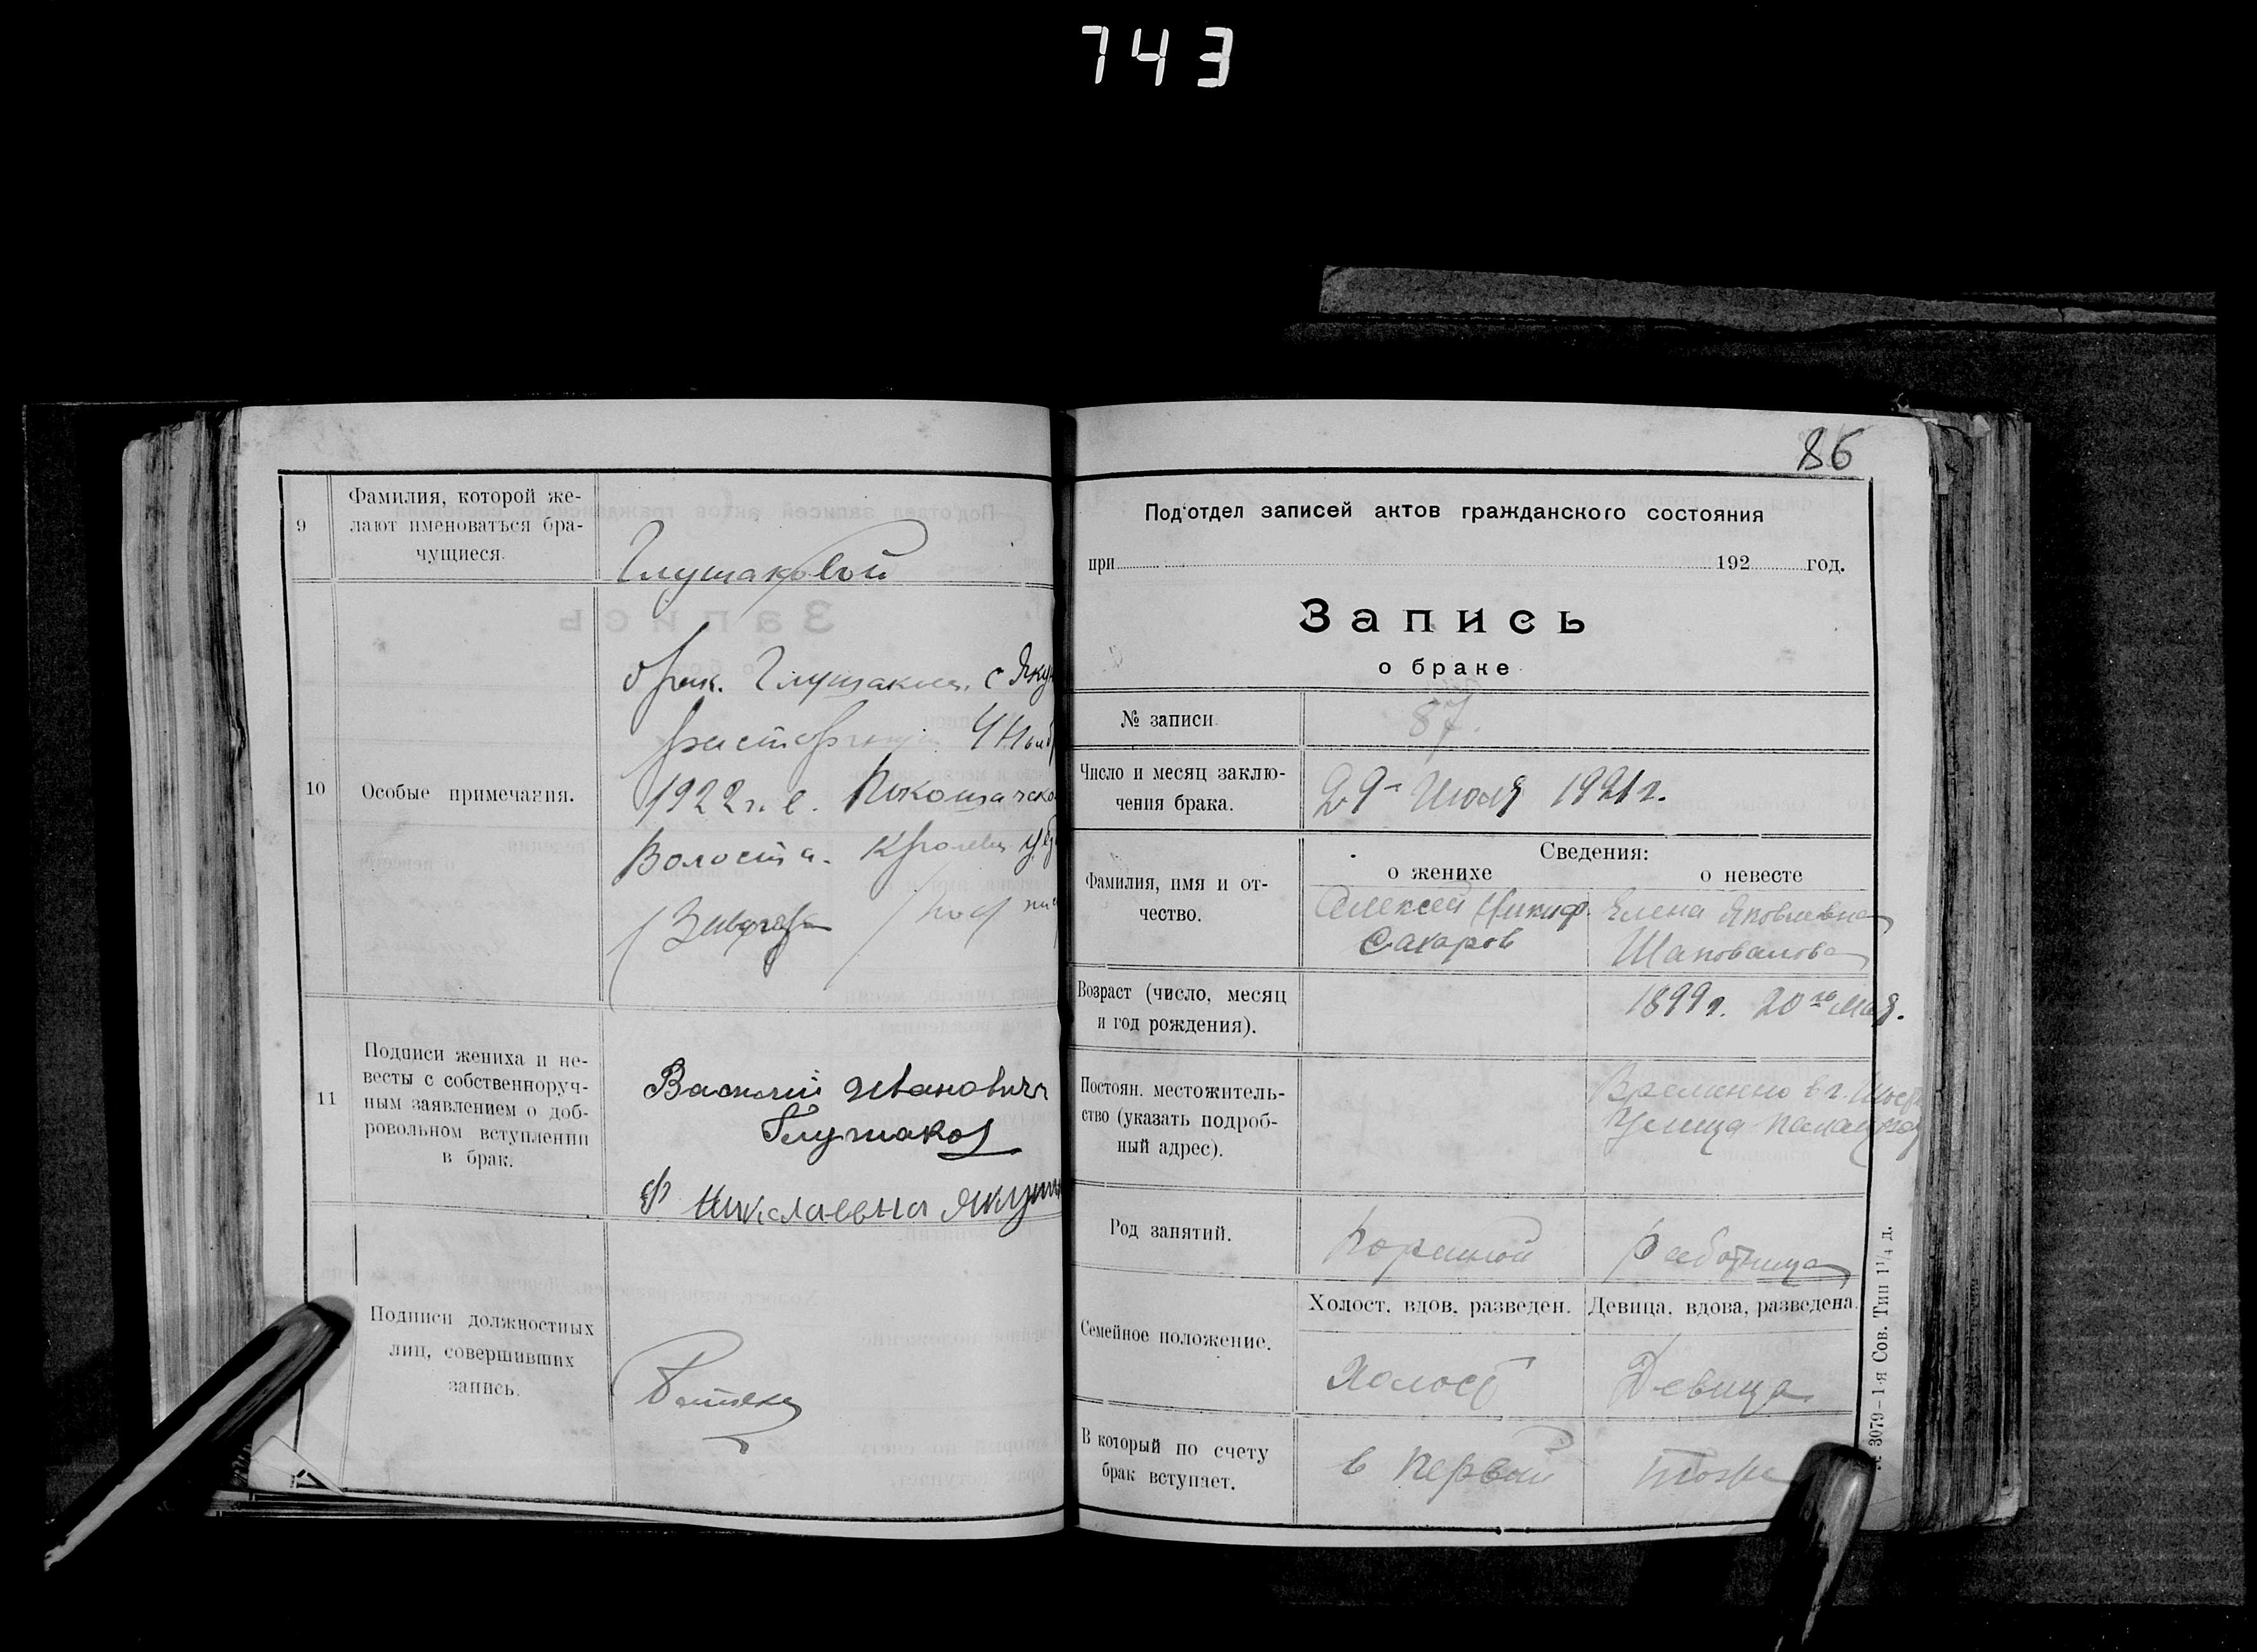 743
9
Фамилия, которой же-
лают именоваться бра-
чущиеся.
Глушаковой
10
Особые примечания.
брак. Глушакова. с Яку
расторгнут 4 Нояб
1922 г. в.
Волости. Кролевец уез
11
Подписи жениха и не-
весты с собственноруч-
ным заявлением о доб-
ровольном вступлении
в брак.
Василий Иванович
Глушаков
Ф Николаевна Якуш
Подписи должностных
лиц, совершивших
запись.
86
Под'отдел записей актов гражданского состояния
при 192 год.
Запись
о браке
№ записи
87.
Число и месяц заклю-
чения брака.
29го Июля 1921 г.
Сведения:
о женихе
о невесте
Фамилия, имя и от-
чество.
Алексей Никиф.
Сахаров
Елена Яковлевна
Шаповалова
Возраст (число, месяц
и год рождения).
1899 г. 20го Мая.
Постоян. местожитель-
ство (указать подроб-
ный адрес).
Временно в г.
Улица
Род занятий.
Работница
Семейное положение.
Холост. вдов. разведен.
Девица, вдова, разведена.
Холост
Девица
В который по счету
брак вступает.
в первый
тоже
3079—1-я Сов. Тип 1¼ д.